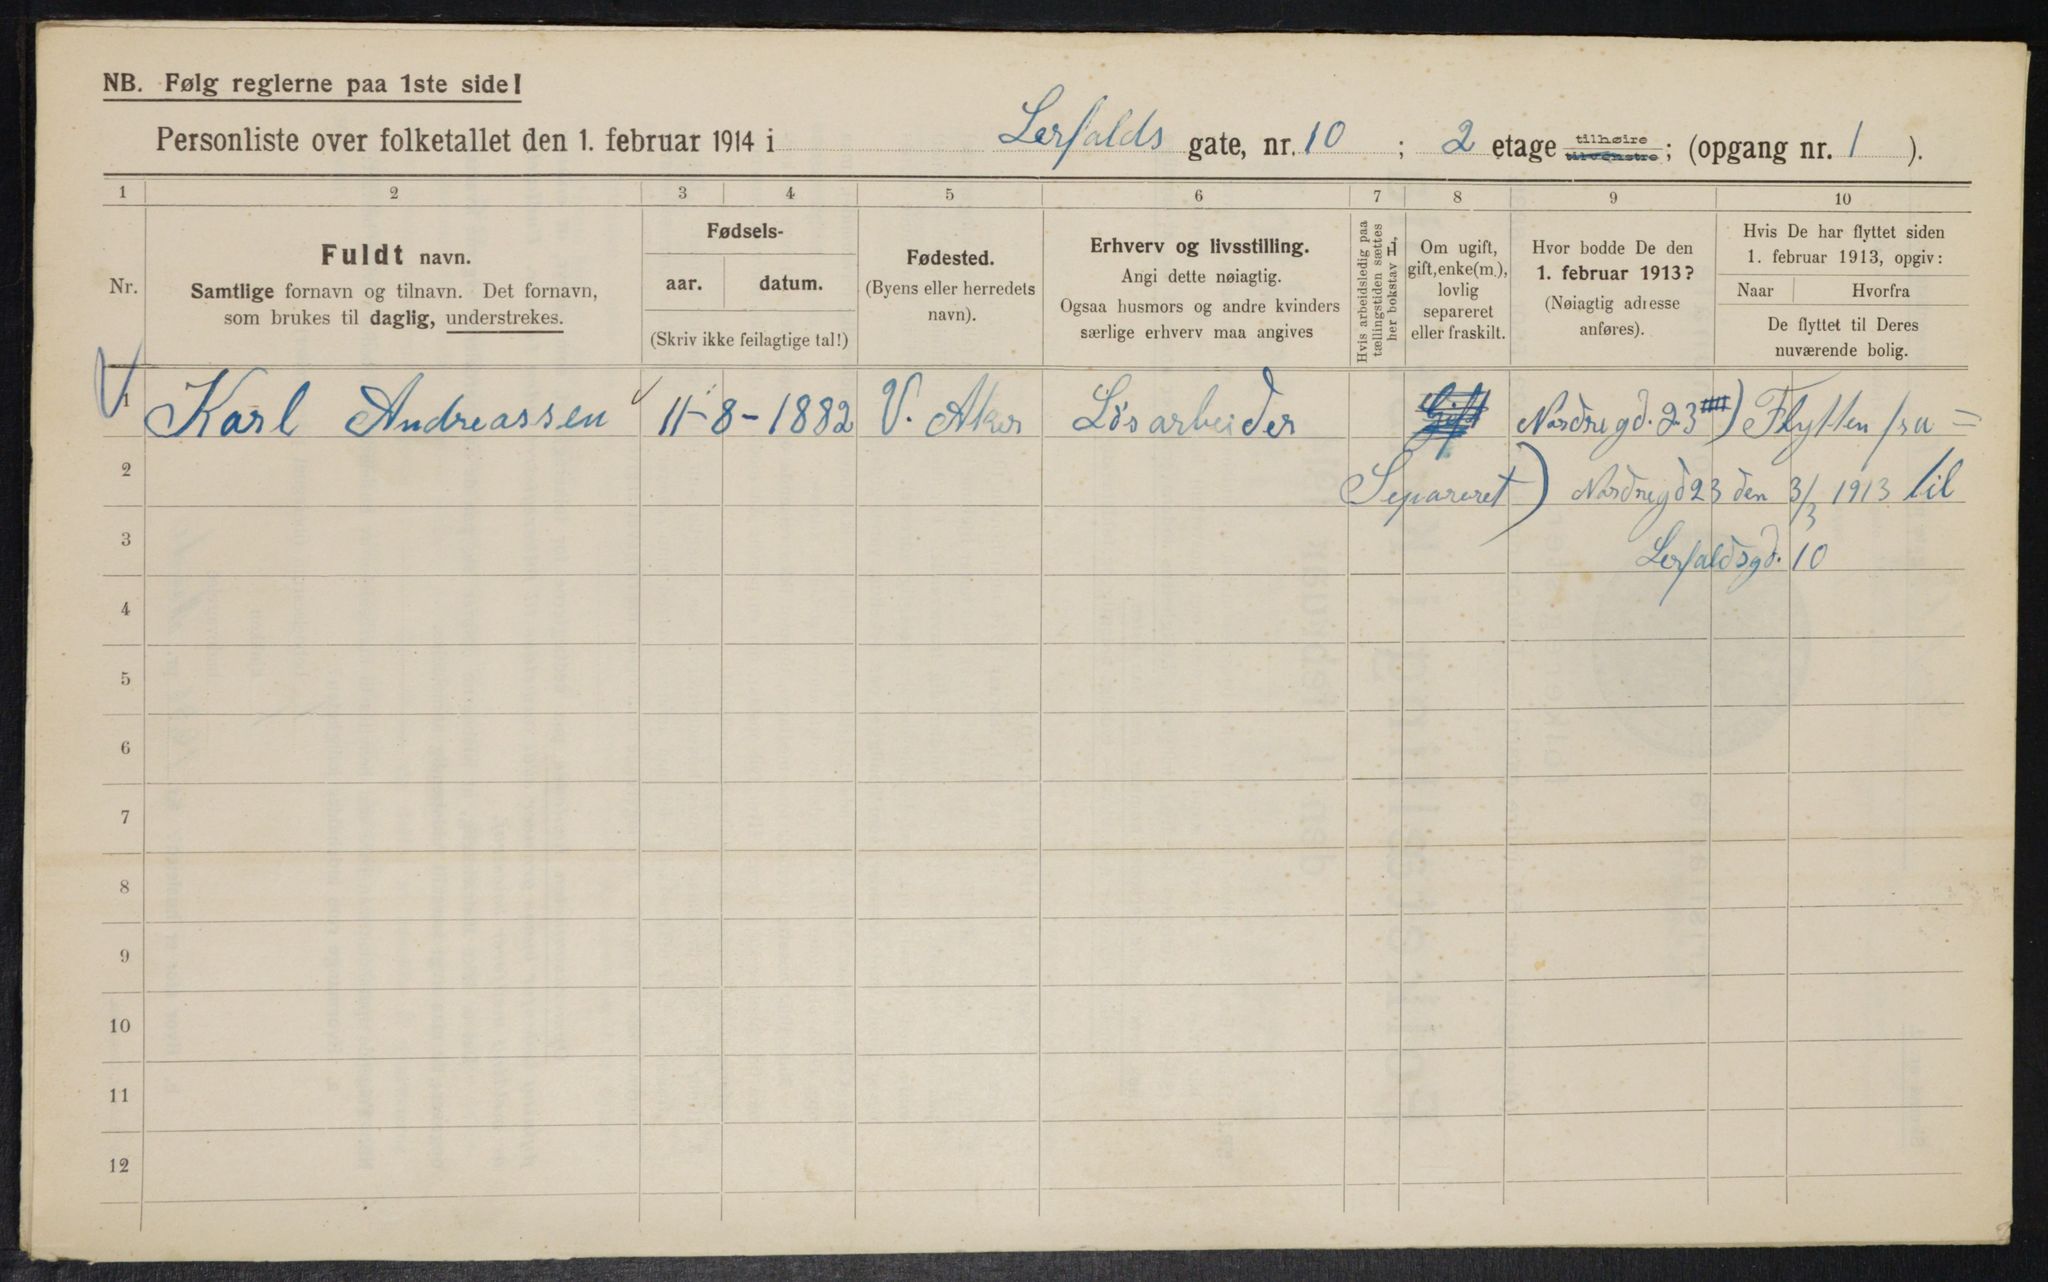 NB. Følg reglerne paa 1ste side!
Personliste over folketallet den 1. februar 1914 i Lerfalds gate, nr. 10 ; 2 etage tilhøire tilvenstre ; (opgang nr. 1 ).
1 2 3 4 5 6 7 8 9 10
Nr.
Fuldt navn.
Samtlige fornavn og tilnavn. Det fornavn,
som brukes til daglig, understrekes.
Fødsels-
aar. datum.
(Skriv ikke feilagtige tal!)
Fødested.
(Byens eller herredets
navn).
Erhverv og livsstilling.
Angi dette nøiagtig.
Ogsaa husmors og andre kvinders
særlige erhverv maa angives
Hvis arbeidsledig paa
tællingstiden sættes
her bokstav H,
Om ugift,
gift, enke(m.),
lovlig
separeret
eller fraskilt.
Hvor bodde De den
1. februar 1913?
(Nøiagtig adresse
anføres).
Hvis De har flyttet siden
1. februar 1913, opgiv:
Naar Hvorfra
De flyttet til Deres
nuværende bolig.
1 Karl Andreassen 11-8-1882 V. Aker Løsarbeider Gift Nordregd. 23 ) Flytten fra =
2 Separeret ) Nordregd 23 den 3/3 1913 til
3 Lerfaldsgd. 10
4
5
6
7
8
9
10
11
12